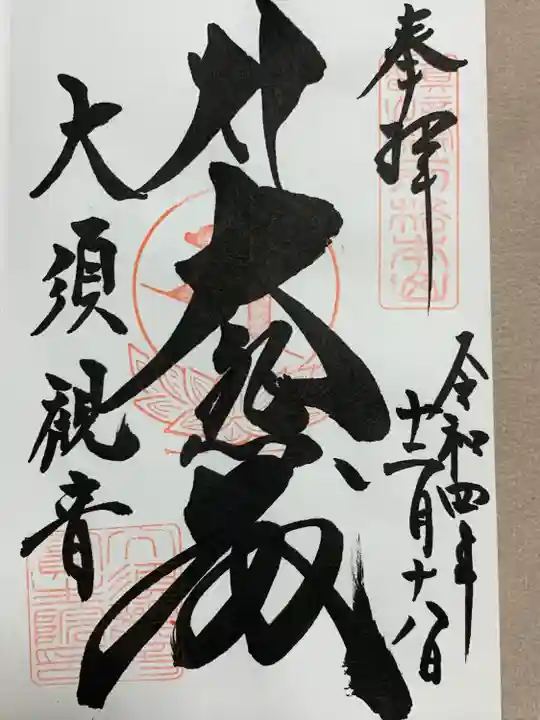 奉拝
令和四年
十二月十八日
大悲殿
大須観音